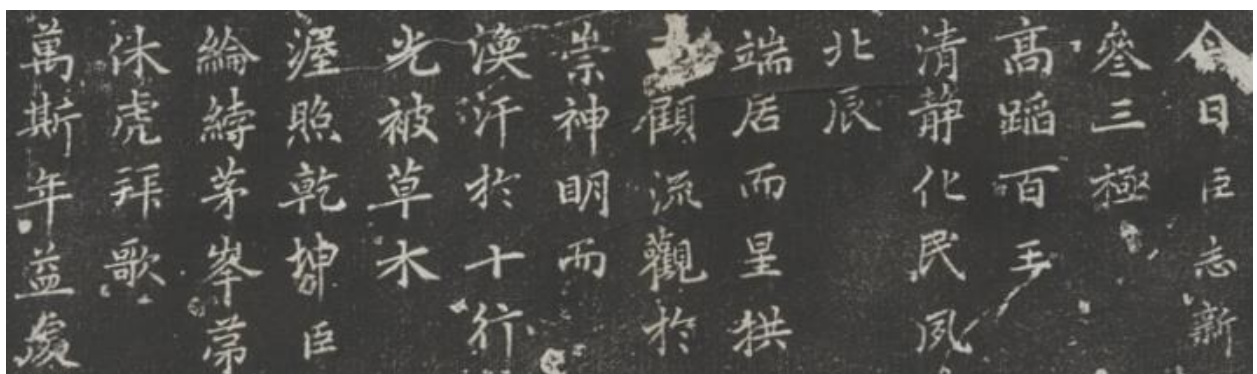 今日臣志新
參三極
高蹈百王
清静化民夙
北辰
端居而星拱
顧流觀於
崇神明而
渙汗於十行
光被草木
渥照乾坤臣
綸茅岑第
休虎拜歌
萬斯年益虔